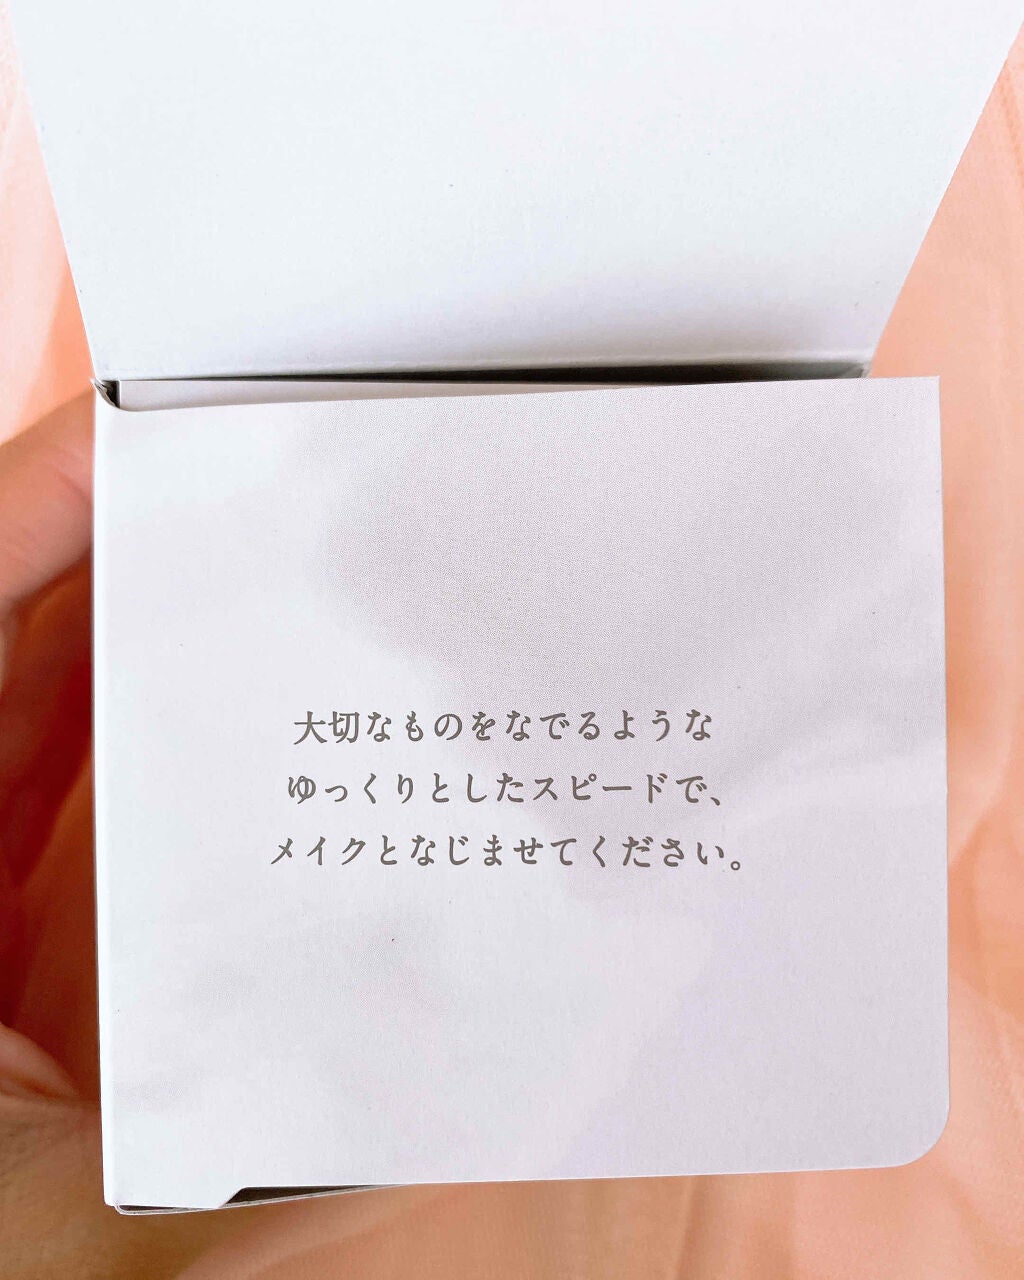 大切なものをなでるような
ゆっくりとしたスピードで、
メイクとなじませてください。